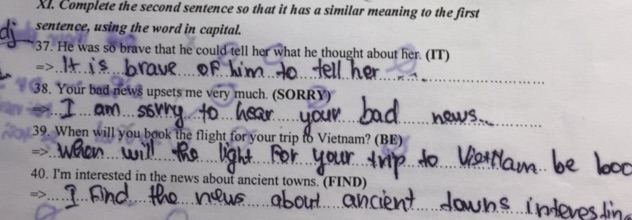 XI. Complete the second sentence so that it has a similar meaning to the first
sentence, using the word in capital.
37. He was so brave that he could tell her what he thought about her. (IT)
=> It is brave of him to tell her
38. Your bad news upsets me very much. (SORRY)
=> I am sorry to hear your bad news
39. When will you book the flight for your trip to Vietnam? (BE)
=> When will the light for your trip to VietNam be boo
40. I'm interested in the news about ancient towns. (FIND)
=> I find the news about ancient towns interestin